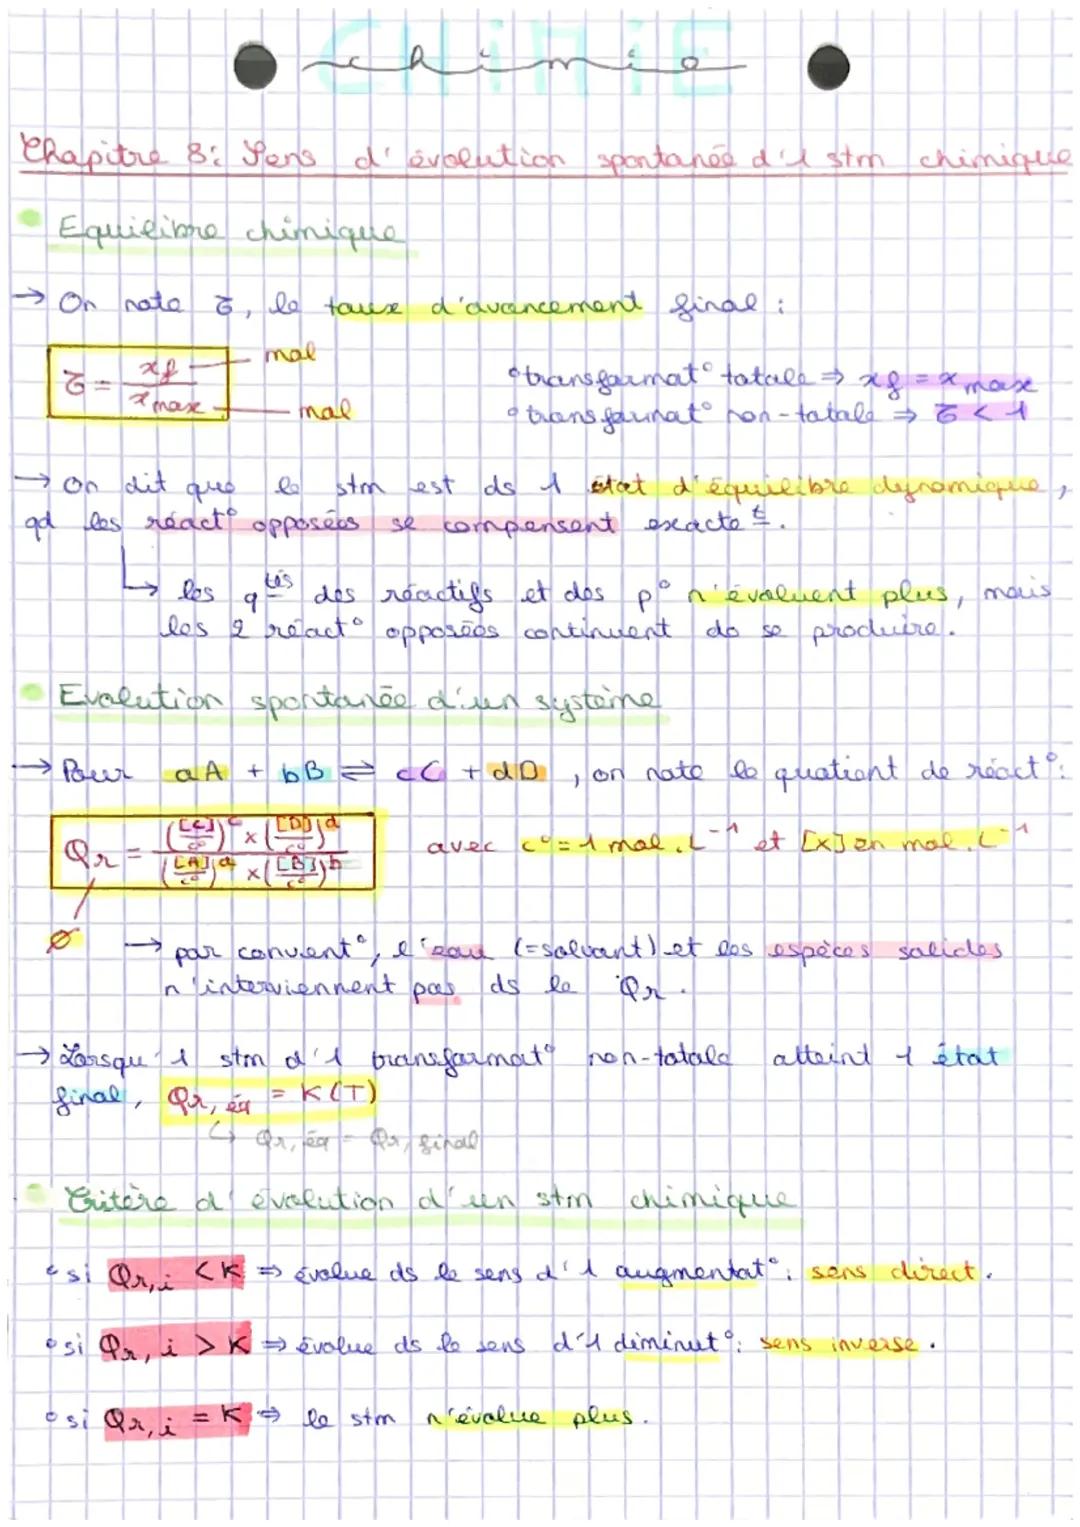 CHIMIE
chimie
Chapitre 8: Sens d'évolution spontanée d'1 stm chimique
Equilibre chimique
→ On note τ, le taux d'avancement final :
τ = xf / xmax — mol — mol
° transformat° totale ⇒ xf = xmax
° transformat° non-totale ⇒ τ < 1
→ On dit que le stm est ds 1 état d'équilibre dynamique,
qd les réact° opposées se compensent exacte t.
↳ les q tés des réactifs et des p° n'évoluent plus, mais
les 2 réact° opposées continuent de se produire.
Evolution spontanée d'un système
→ Pour aA + bB ⇌ cC + dD, on note le quotient de réact°:
Qr = (([C]/c°)^c × ([D]/c°)^d) / (([A]/c°)^a × ([B]/c°)^b) avec c° = 1 mol.L⁻¹ et [X] en mol.L⁻¹
Ø → par convent°, l'eau (=solvant) et les espèces solides
n'interviennent pas ds le Qr.
→ Lorsqu'1 stm d'1 transformat° non-totale atteint 1 état
final, Qr, éq = K(T)
↳ Qr, éq = Qr, final
Critère d'évolution d'un stm chimique
° si Qr,i < K ⇒ évolue ds le sens d'1 augmentat°: sens direct.
° si Qr,i > K ⇒ évolue ds le sens d'1 diminut°: sens inverse.
° si Qr,i = K ⇒ le stm n'évolue plus.